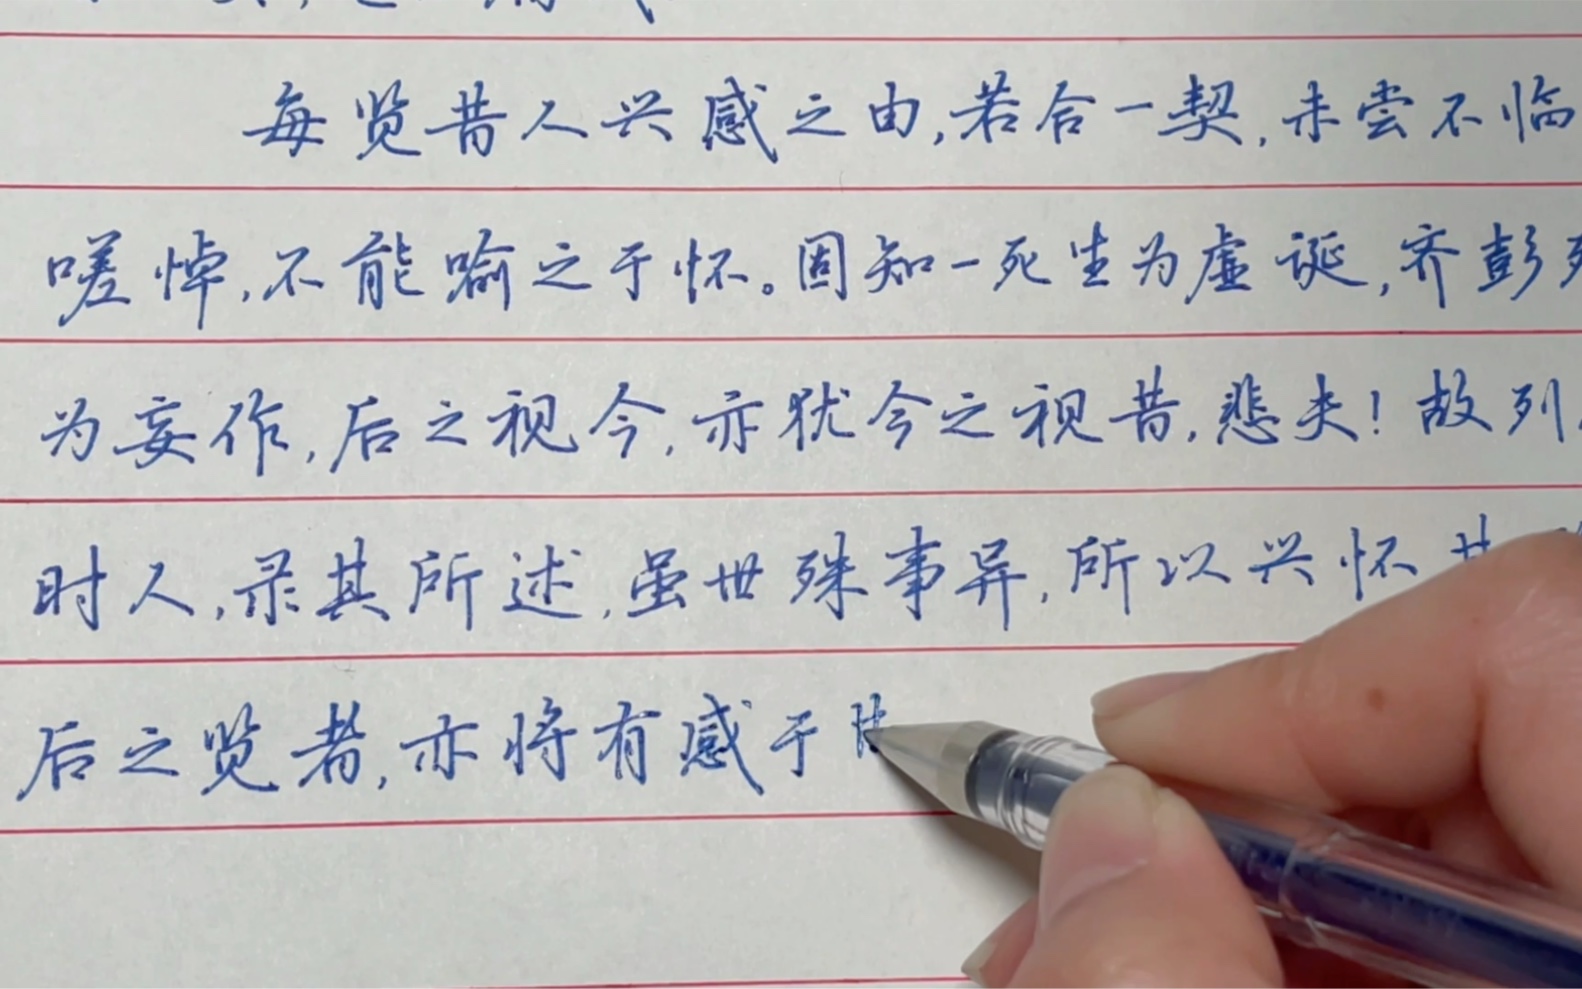 每览昔人兴感之由,若合一契,未尝不临
嗟悼,不能喻之于怀。固知一死生为虚诞,齐彭
为妄作,后之视今,亦犹今之视昔,悲夫!故列
时人,录其所述,虽世殊事异,所以兴怀
后之览者,亦将有感于